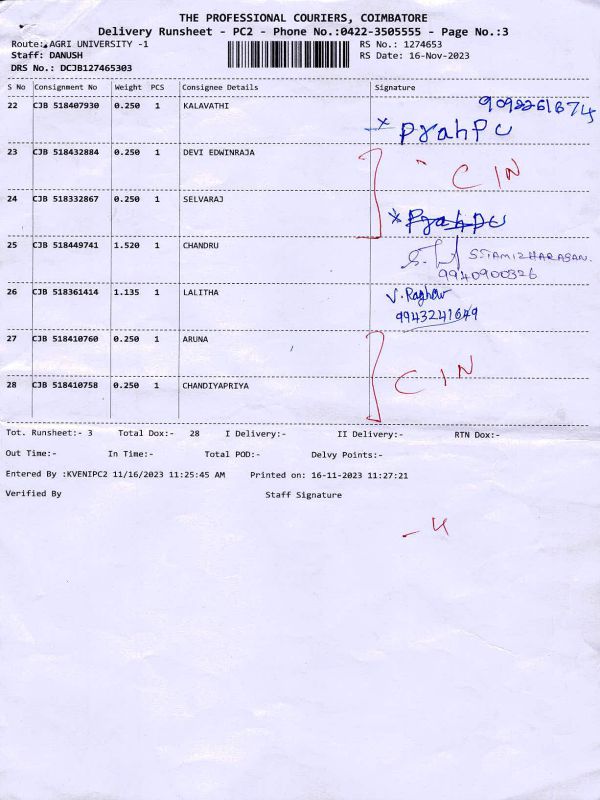 THE PROFESSIONAL COURIERS, COIMBATORE
Delivery Runsheet - PC2 - Phone No.:0422-3505555 - Page No.:3
Route: AGRI UNIVERSITY -1 RS No.: 1274653
Staff: DANUSH RS Date: 16-Nov-2023
DRS No.: DCJB127465303
S No Consignment No Weight PCS Consignee Details Signature
22 CJB 518407930 0.250 1 KALAVATHI
23 CJB 518432884 0.250 1 DEVI EDWINRAJA CIN
24 CJB 518332867 0.250 1 SELVARAJ
25 CJB 518449741 1.520 1 CHANDRU S STAMIZHARASAN.
9940900326
26 CJB 518361414 1.135 1 LALITHA V. Raghav
9943241649
27 CJB 518410760 0.250 1 ARUNA CIN
28 CJB 518410758 0.250 1 CHANDIYAPRIYA
Tot. Runsheet:- 3 Total Dox:- 28 I Delivery:- II Delivery:- RTN Dox:-
Out Time:- In Time:- Total POD:- Delvy Points:-
Entered By :KVENIPC2 11/16/2023 11:25:45 AM Printed on: 16-11-2023 11:27:21
Verified By Staff Signature
- 4